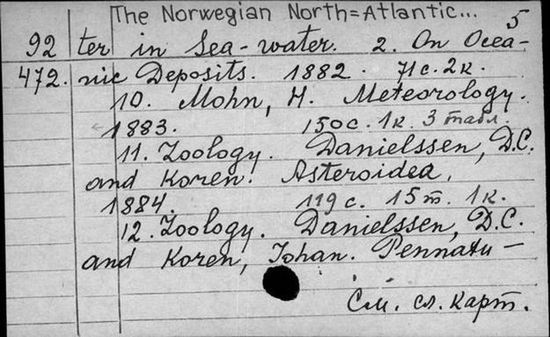 The Norwegian North=Atlantic... 5
92 ter in Sea-water. 2. On Ocea-
472. nic Deposits. 1882. 71с. 2к.
10. Mohn, H. Meteorology.
1883. 150с. 1к. 3 табл.
11. Zoology. Danielssen, D.C.
and Koren. Asteroidea.
1884. 119с. 15т. 1к.
12. Zoology. Danielssen, D.C.
and Koren, Johan. Pennatu-
См. сл. карт.